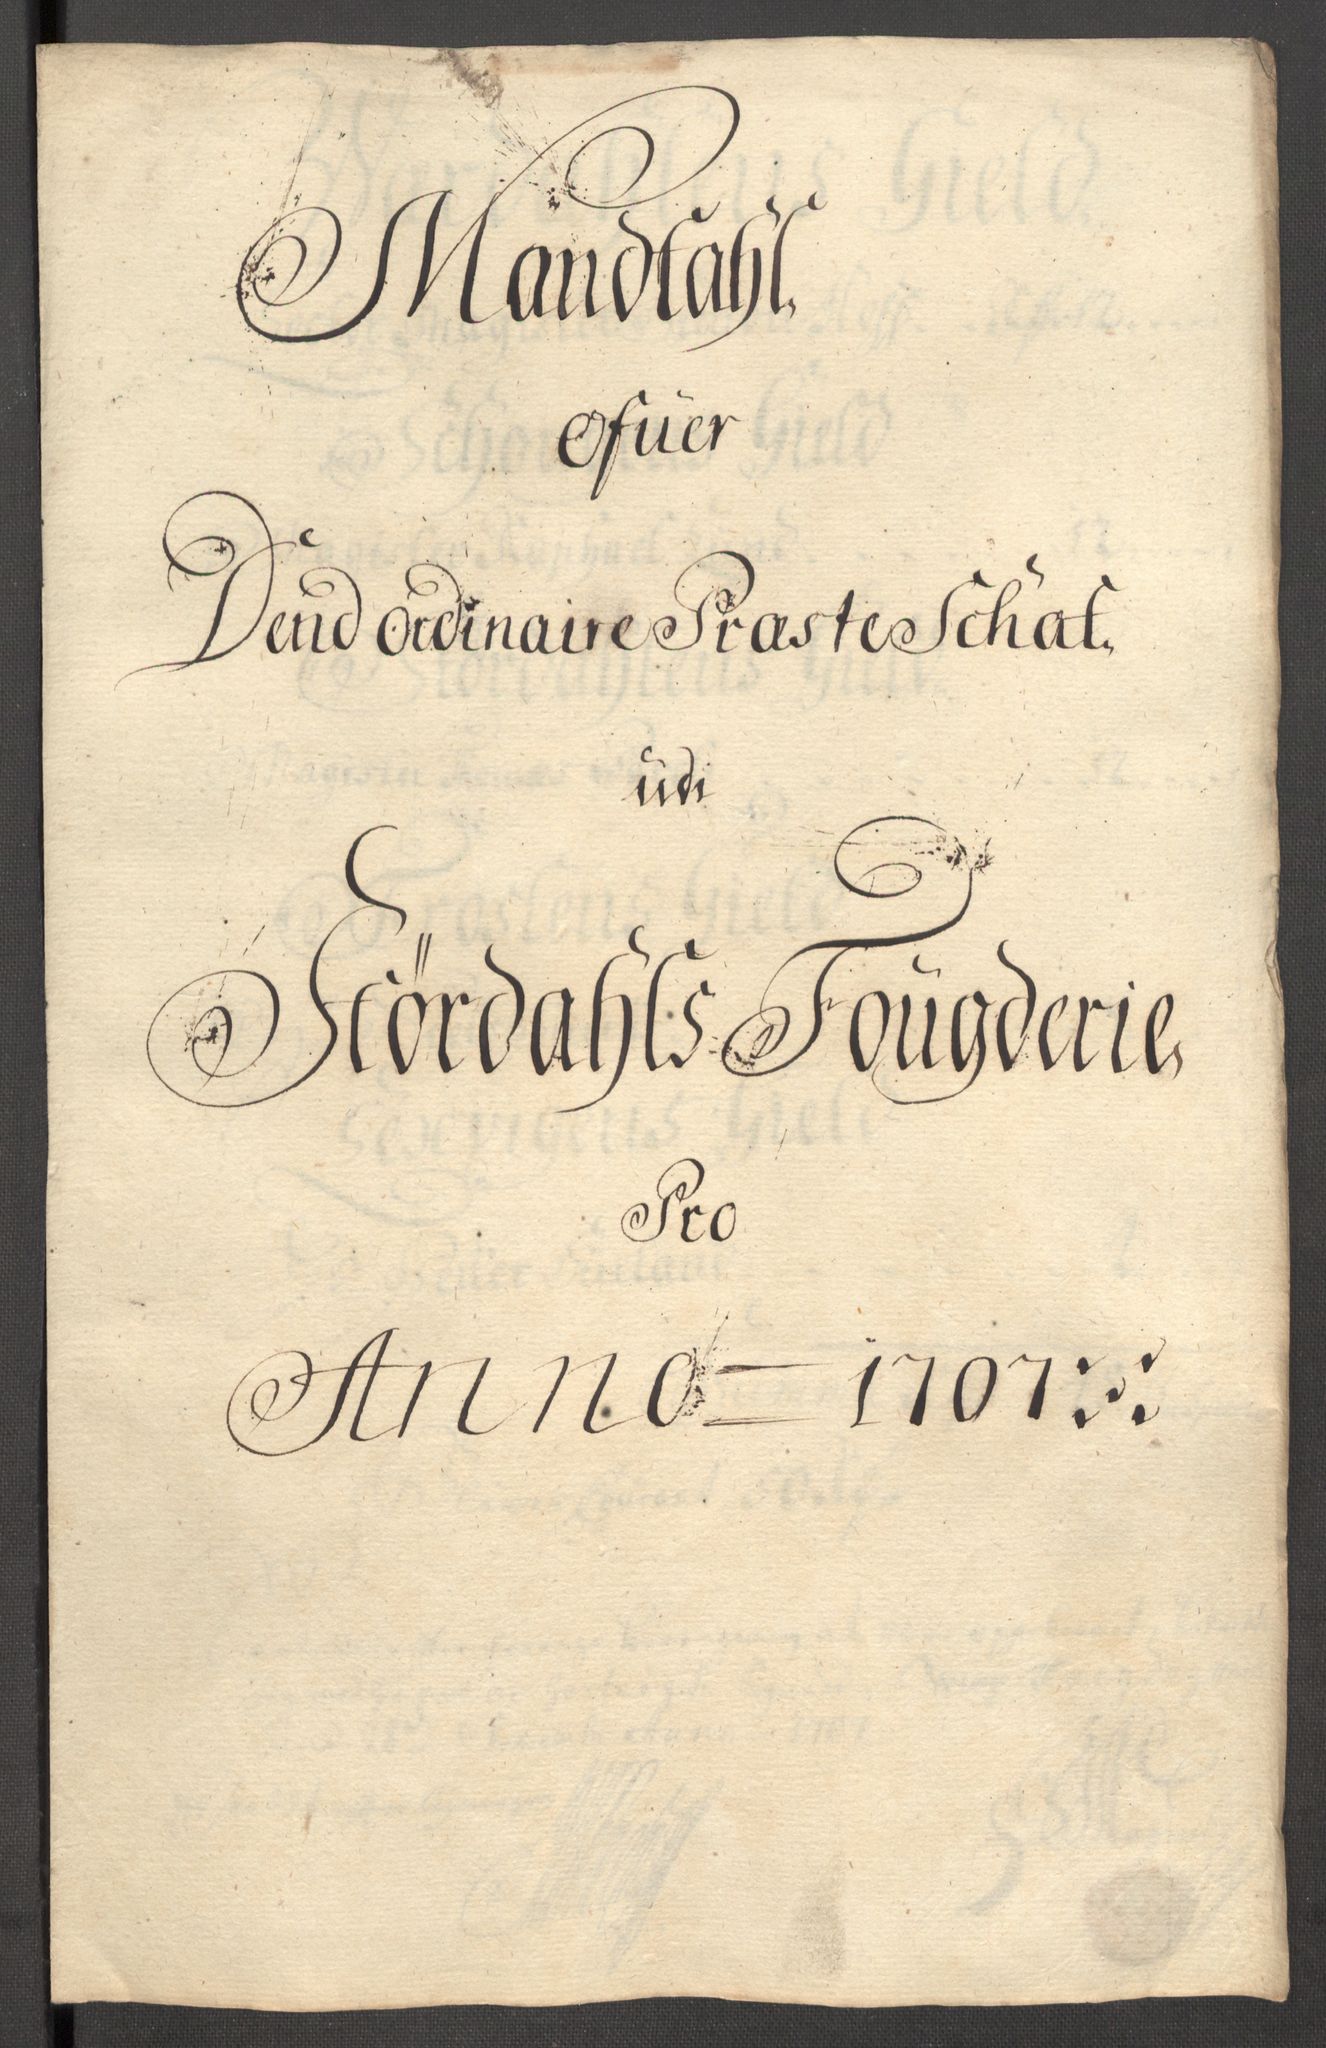 Mandtahl.
ofuer
Dend ordinaire Præste Schat.
udi
Stördahls Fougderie,
Pro
Anno = 1707